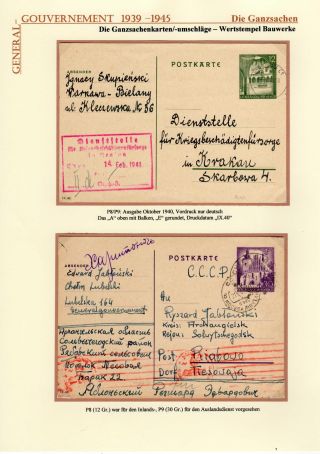 GENERAL-
GOUVERNEMENT 1939 -1945
Die Ganzsachen
Die Ganzsachenkarten/-umschläge – Wertstempel Bauwerke
ABSENDER
POSTKARTE
12
Ignacy Skupieński
Warszawa - Bielany
ul. Kleczewska № 56
Dienststelle
für Kriegsbeschädigtenfürsorge
in Krakau
Skarbowa 4.
Dienststelle
14. Feb. 1941
P8/P9: Ausgabe Oktober 1940, Vordruck nur deutsch
Das „A" oben mit Balken, „E" gerundet, Druckdatum „IX.40"
ABSENDER
POSTKARTE
C.C.C.P.
Edward Jabłoński
Cholm Lubelski
Lubelska 164
Generalgouvernement
Ryszard Jabłoński
Kreis: Archangielsk
Rejon: Solwytschegodsk
Post: Riabowo
Dorf:
Архангельская область
Сольвычегодский район
Рябовский сельсовет
Барак 22
Яблоньский Рышард Эдвардович
P8 (12 Gr.) war für den Inlands-, P9 (30 Gr.) für den Auslandsdienst vorgesehen